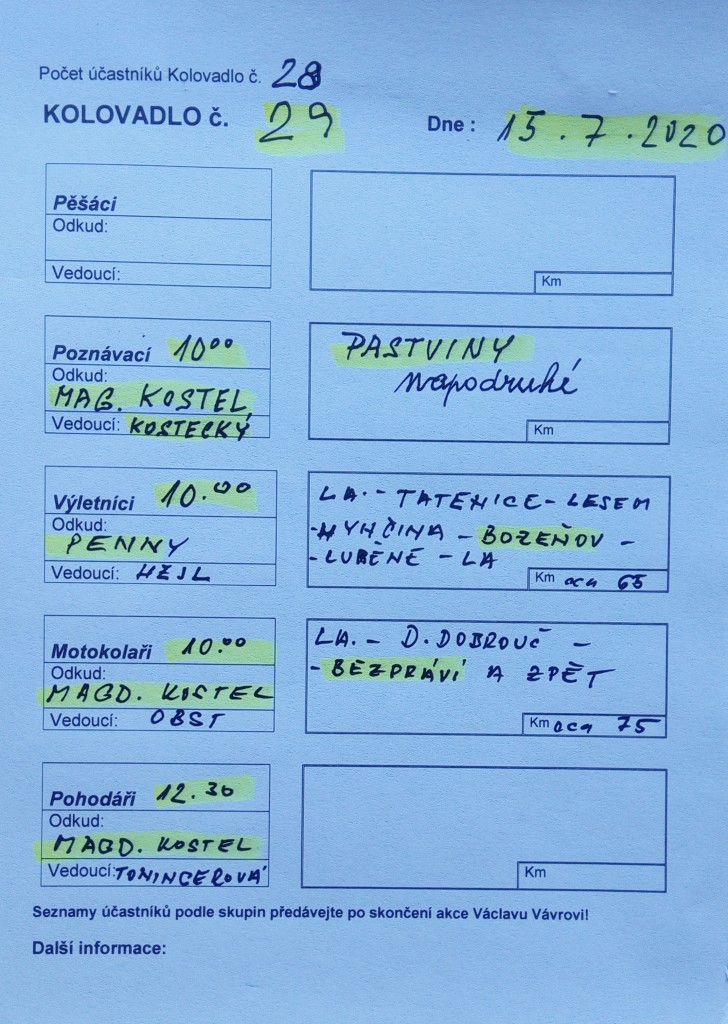 Počet účastníků Kolovadlo č. 28
KOLOVADLO č. 29 Dne : 15.7.2020
Pěšáci
Odkud:
Vedoucí:
Km
Poznávací 10⁰⁰
Odkud:
MAG. KOSTEL
Vedoucí: KOSTECKÝ
PASTVINY
napodruhé
Km
Výletníci 10.⁰⁰
Odkud:
PENNY
Vedoucí: HEJL
LA. - TATENICE - LESEM
- HYNČINA - BOZEŇOV -
- LUBĚNÉ - LA
Km cca 65
Motokolaři 10.⁰⁰
Odkud:
MAGD. KOSTEL
Vedoucí: OBST
LA. - D. DOBROUČ -
- BEZPRÁVÍ A ZPĚT
Km cca 75
Pohodáři 12.30
Odkud:
MAGD. KOSTEL
Vedoucí: TONINCEROVÁ
Km
Seznamy účastníků podle skupin předávejte po skončení akce Václavu Vávrovi!
Další informace: